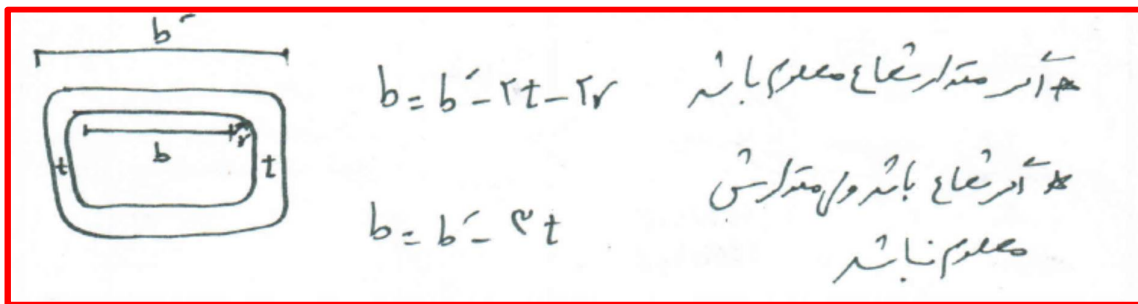 b'
b
t
t
r
b = b' - ۲t - ۲r
* اگر مقدار شعاع معلوم باشد
* اگر شعاع باشد ولی مقدارش
معلوم نباشد
b = b' - ۳t